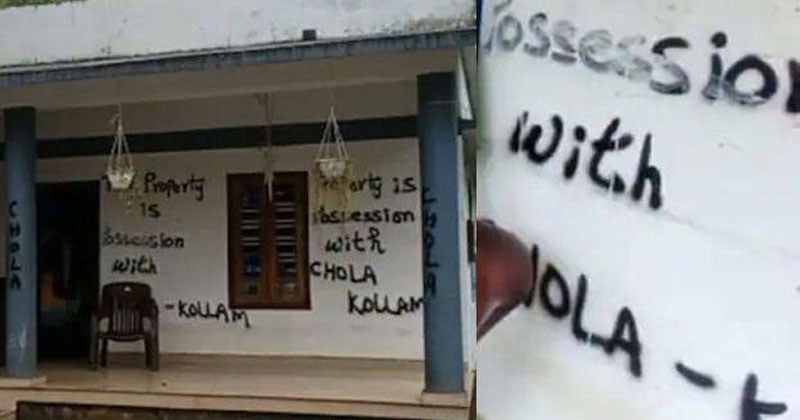 CHOLA
Property
is
Possession
with
- KOLLAM
Property is
Possession
with
CHOLA
KOLLAM
CHOLA
Possession
with
HOLA - K